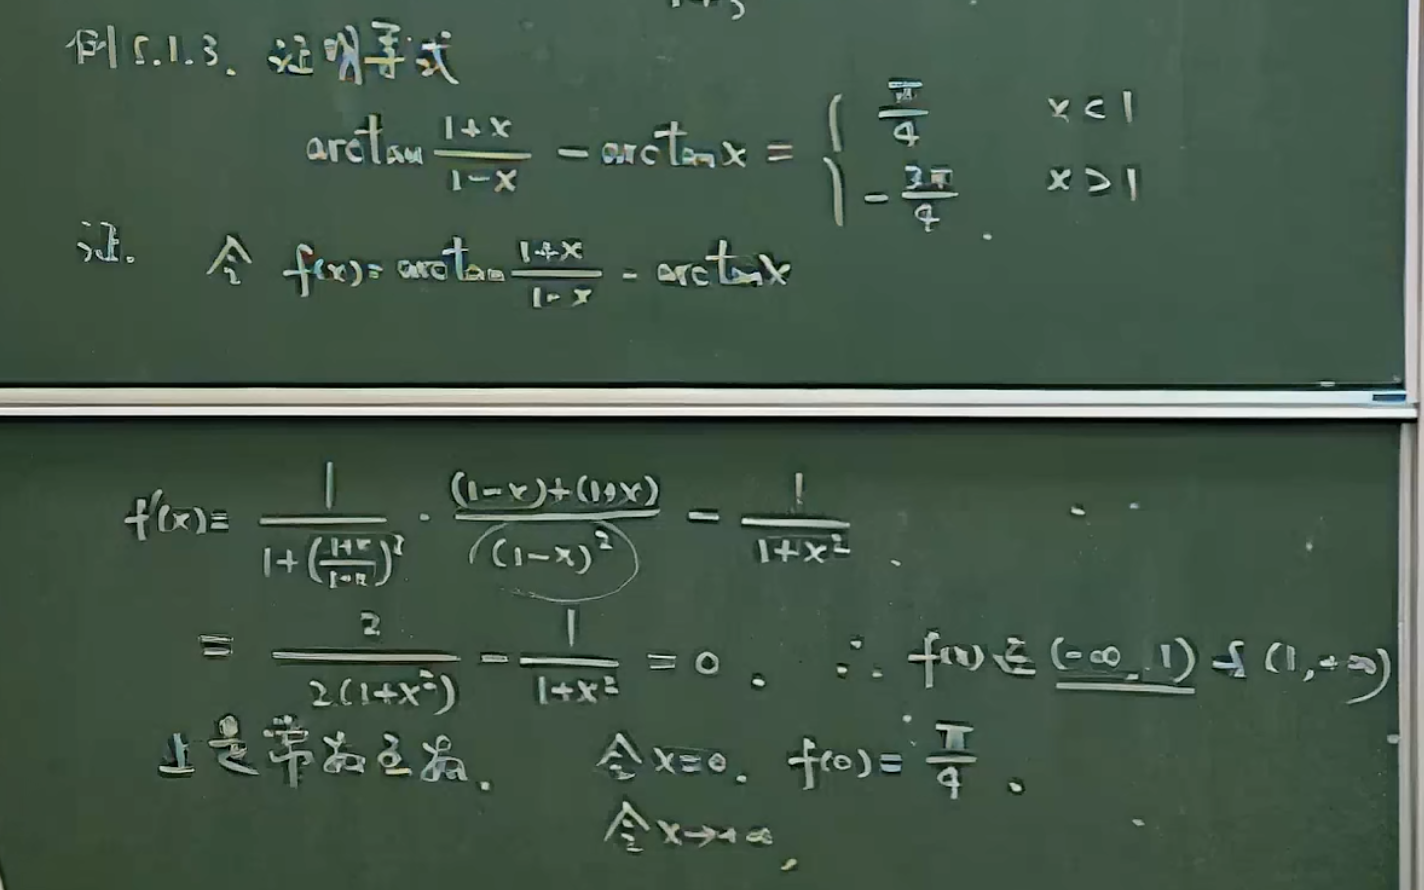 例5.1.3. 证明等式
arctan (1+x)/(1-x) - arctan x = { π/4 x<1
-3π/4 x>1 .
证. 令 f(x)= arctan (1+x)/(1-x) - arctan x
f'(x)= 1/(1+((1+x)/(1-x))²) · ((1-x)+(1+x))/(1-x)² - 1/(1+x²) .
= 2/(2(1+x²)) - 1/(1+x²) = 0 . ∴ f(x)在 (-∞,1) 与 (1,+∞)
上是常数函数. 令x=0. f(0)= π/4 .
令x→+∞,